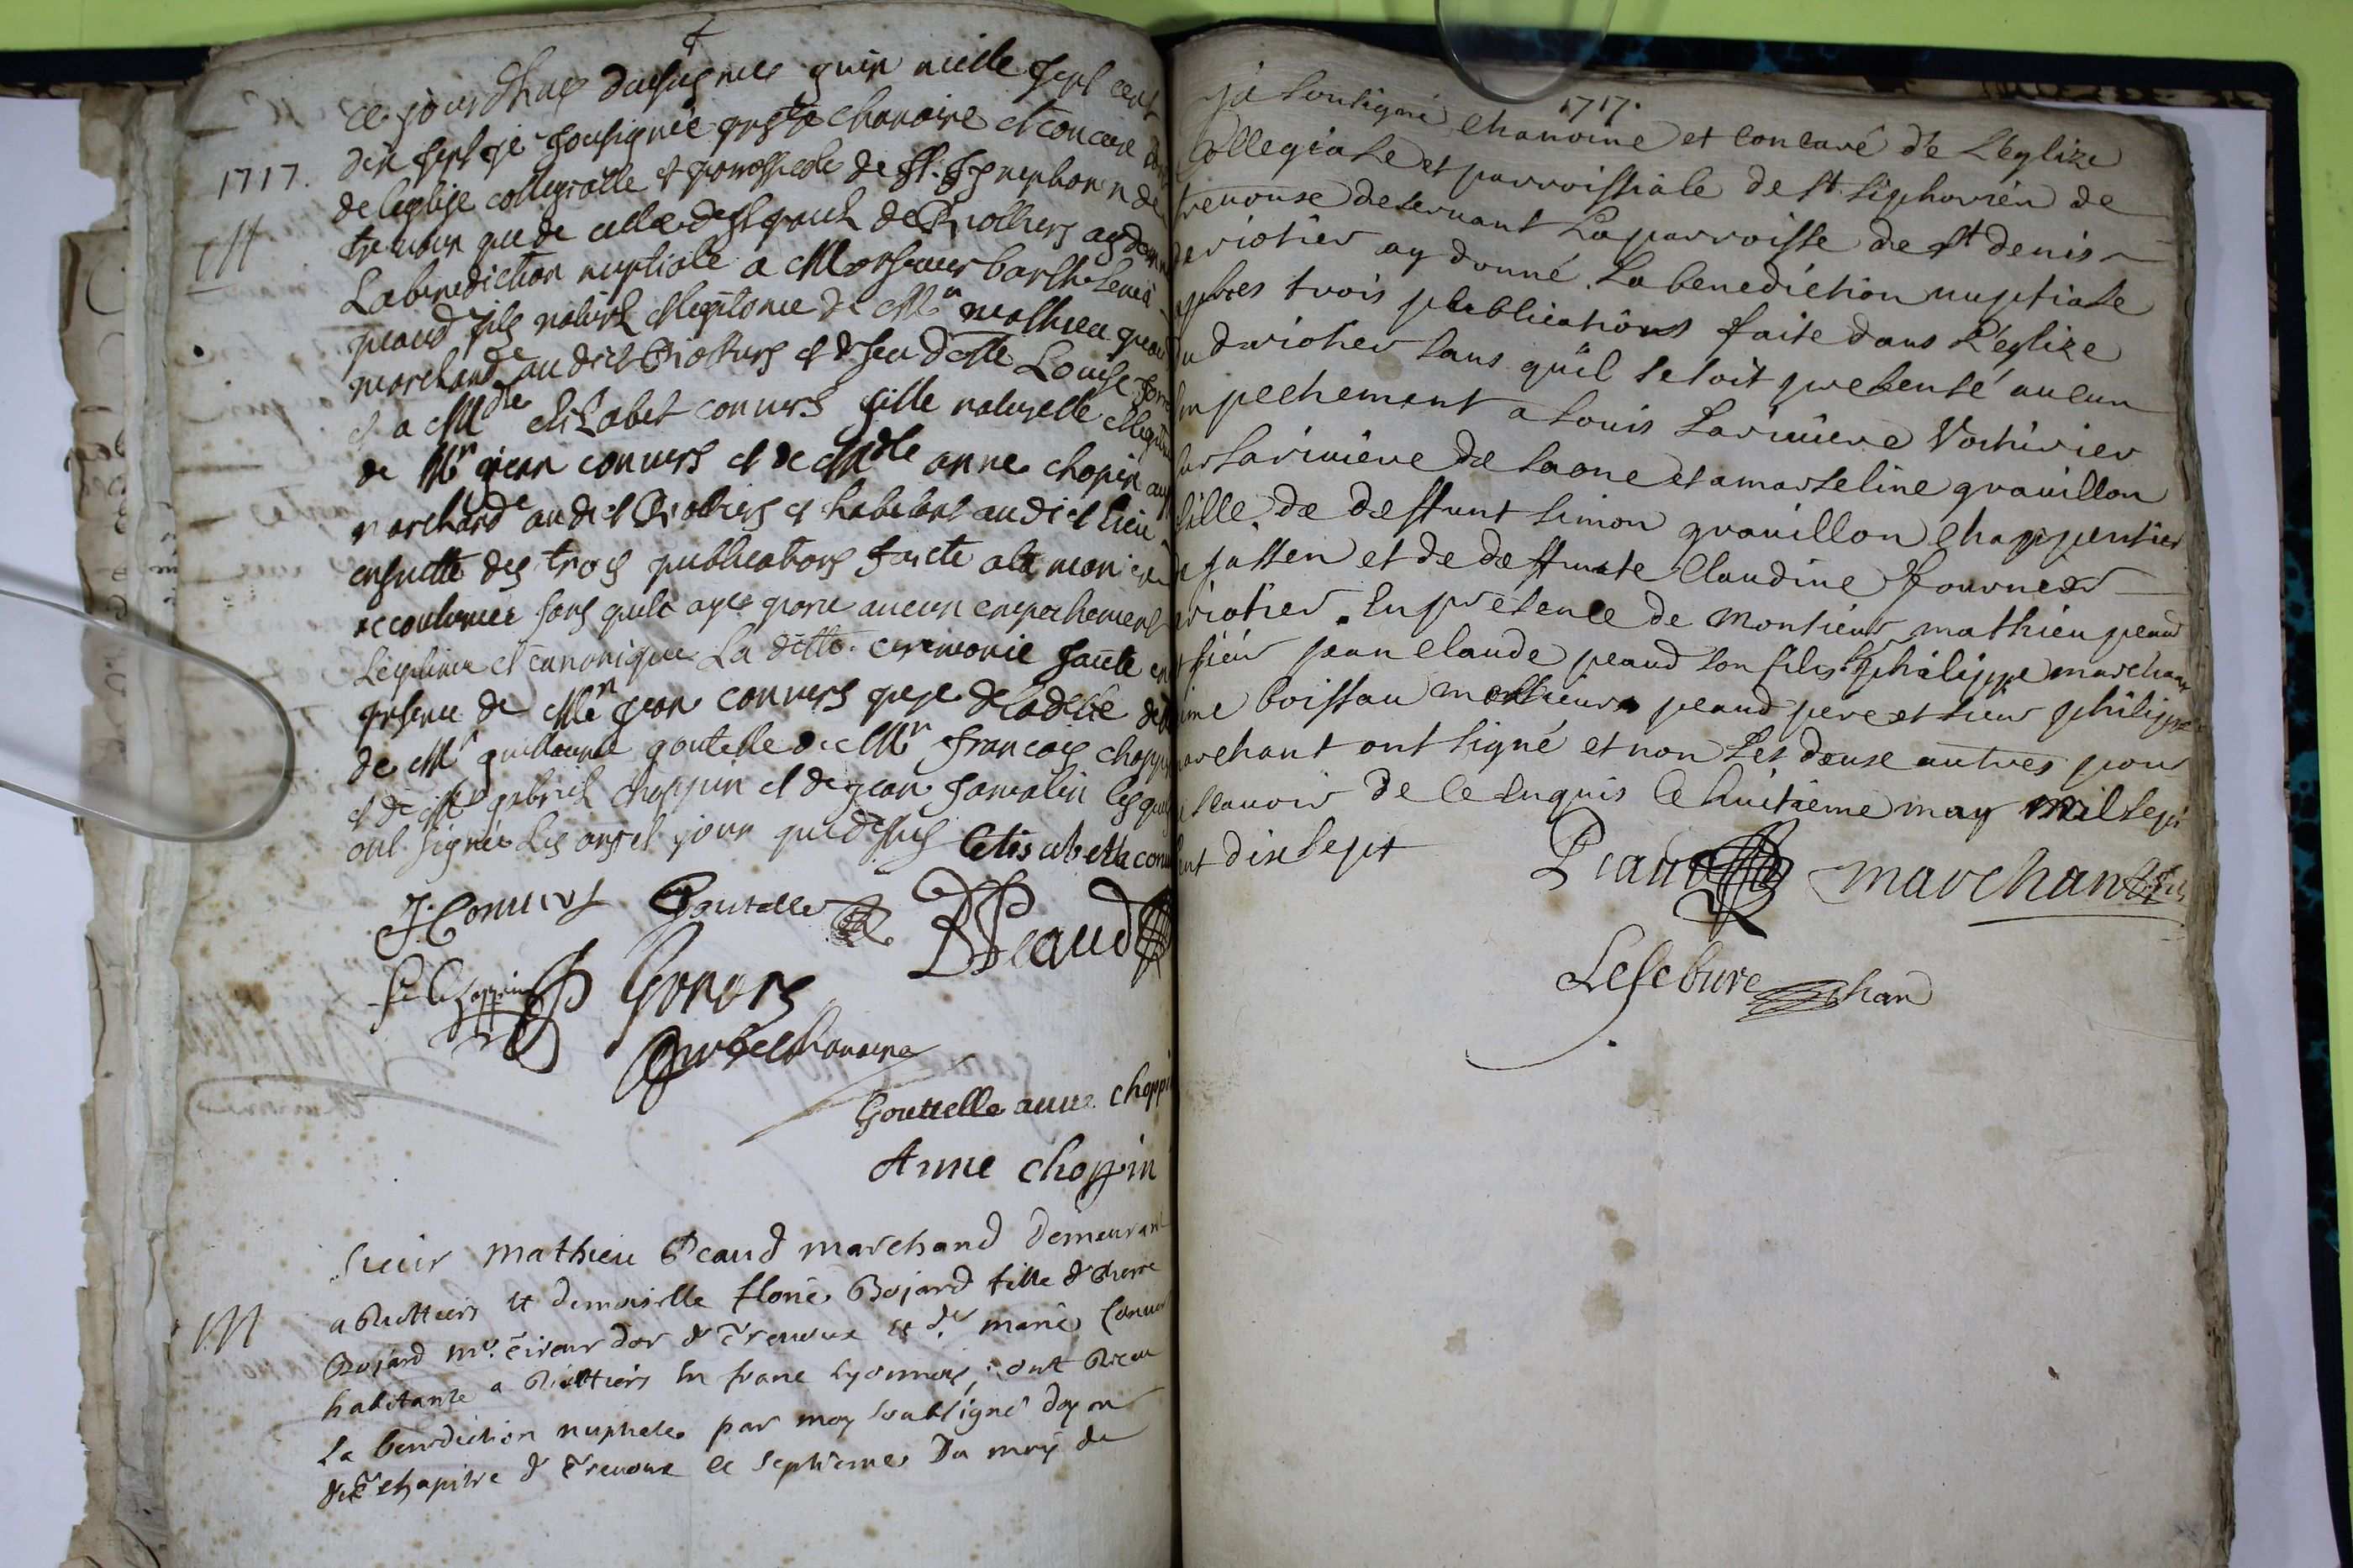 ce jourdhuy dousiesme juin mille sept cent
1717.
dix sept je sousignée prestre chanoine et concure
de leglise collegialle et parossiale de St. Symphorien de
trevoux que de celle de de Riottiers ay donné
M
La benediction nuptiale a Monsieur barthelemi
peaud fils naturel et legitime de Mr mathieu peaud
marchand audict Riottiers et de feu delle Louise
et a Mdlle Elizabet convers fille naturelle et legitime
de Mr jean convers et de Mdlle anne chopin
marchand audict Riottiers et habitant audict lieu
ensuitte des trois publications faicte ala maniere
accoutumée sans quil aye paru aucun empechement
legitime et canonique La ditte ceremonie faicte en
presence de Mr jean convers pere de ladelle
de Mr guillaume goutelle de Mr francois choppin
et de Mr gabriel choppin et de jean lesquels
ont signés les ans et jour que dessus Elisabetha conv
J. Convers Goutelle BPeaud
f. Choppin Convers
chanoine
Gouttelle anne choppi
Anne choppin
Sieur Mathieu Peaud marchand demeurant
M
a Riottiers et demoiselle Bojard fille de Pierre
Bojard Me. Tireur dor de Trevoux et de. marie Conver
habitante a Riottiers en franc Lyonnois, ont Receu
La benediction nuptiale par moy soubsigné doyen
du chapitre de Trevoux le septieme Du moy de
1717.
ja sousigné chanoine et concuré de L'eglize
collegiale et parroissiale de st. siphorien de
trevouse deservant La parroisse de st denis
de riotier ay donné La benediction nuptiale
apbres trois publications faite dans L'eglize
du driotier sans qu'il se soit presensé aucun
empechement a Louis Lariviere Voiturier
sur Lariviere de saone et a marseline gravillon
fille de deffunt simon gravillon chappentier
de jassen et de deffunte Claudine fournier
riotier. En presence de monsieur mathieu peaud
sieur jean Claude peaud son fils philippe marchant
boissau monsieur peaud pere et sieur philippe
marchant ont signé et non Les deuse autres pour
ne scavoir de ce Enquis Ce huitieme may mil sept
cent dix sept
Peaud Marchant fils
Lefebure chan